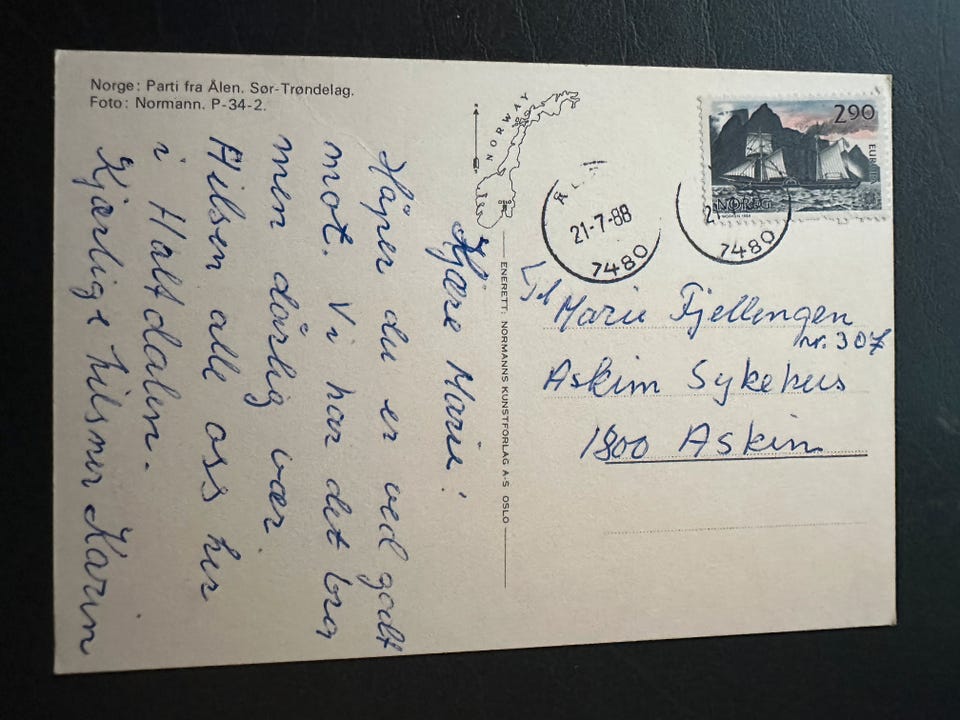 Norge: Parti fra Ålen. Sør-Trøndelag.
Foto: Normann. P-34-2.
NORWAY
OSLO
Kjære Marie!
Håper du er ved godt
mot. Vi har det bra
men dårlig vær
Hilsen alle oss her
i Haltdalen.
Kjærlige hilsner Karin
ENERETT: NORMANNS KUNSTFORLAG A-S OSLO
290
NOREG
21-7-88
7480
21
7480
Marie Fjellengen
nr. 307
Askim Sykehus
1800 Askim